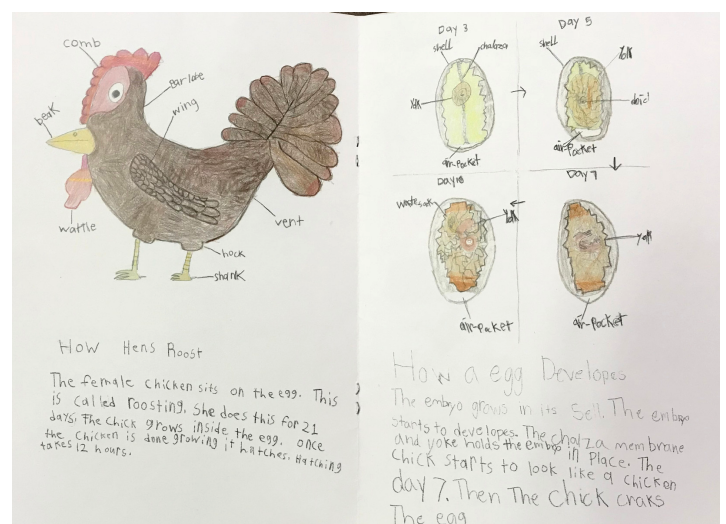 comb
ear lobe
wing
beak
wattle
vent
hock
shank
How Hens Roost
The female chicken sits on the egg. This
is called roosting. She does this for 21
days. The chick grows inside the egg. once
the chicken is done growing it hatches. Hatching
takes 12 hours.
Day 3
shell
chalaza
yolk
air-pocket
Day 5
shell
yolk
air-pocket
Day 7
yolk
air-pocket
Day
yolk
air-pocket
How a egg Developes
The embryo grows in its Sell. The embyo
starts to developes. The chalza membrane
and yoke holds the embryo in place. The
chick starts to look like a chicken
day 7. Then The chick craks
The egg